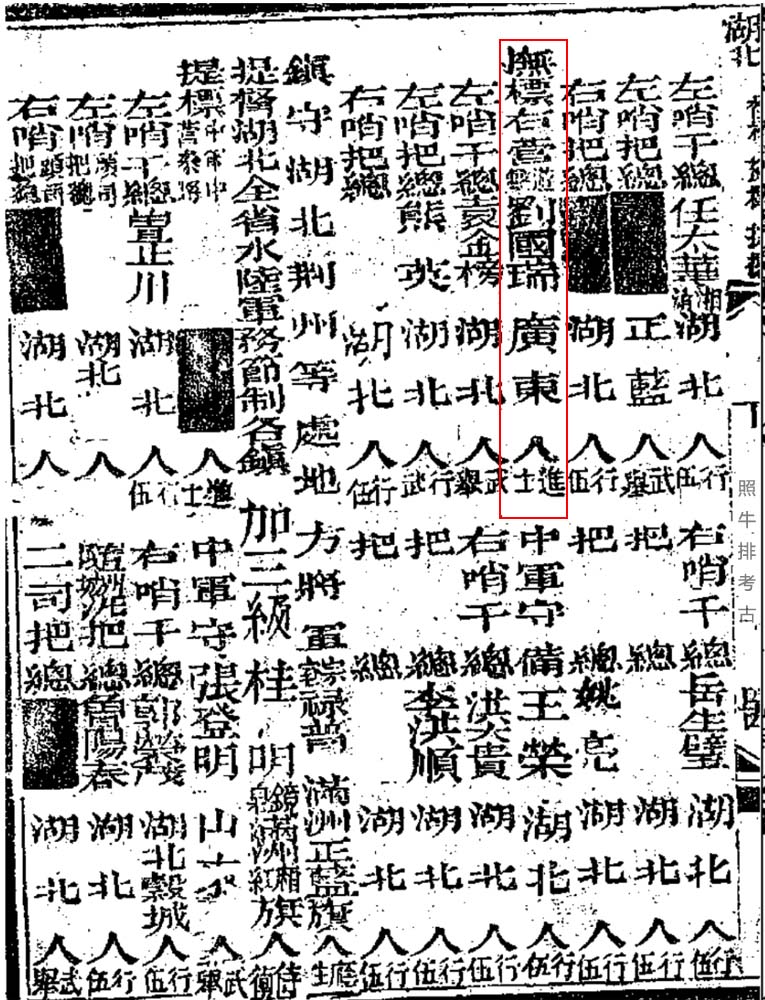 湖北
左哨千總任太華湖北人行伍
右哨千總岳生璧湖北人行伍
左哨把總正藍人武舉
把總湖北人行伍
右哨把總湖北人行伍
把總姚亮湖北人行伍
撫標右營遊擊劉國瑞廣東人進士
中軍守備王榮湖北人行伍
左哨千總袁金榜湖北人武舉
右哨千總洪大貴湖北人行伍
左哨把總熊英湖北人行武
把總李洪順湖北人行伍
右哨把總湖北人行伍
把總湖北人行伍
鎮守湖北荊州等處地方將軍宗室祿普滿洲正藍旗人廕生
提督湖北全省水陸軍務節制各鎮加三級桂明鏡泉滿洲鑲紅旗人侍衛
提標中軍中營參將人進士
中軍守張登明山東人武舉
左哨千總曾正川湖北人行伍
右哨千總湖北穀城人行伍
左哨頭司把總湖北人
把總曾陽春湖北人行伍
右哨頭司把總湖北人
二司把總湖北人武舉
照牛排考古